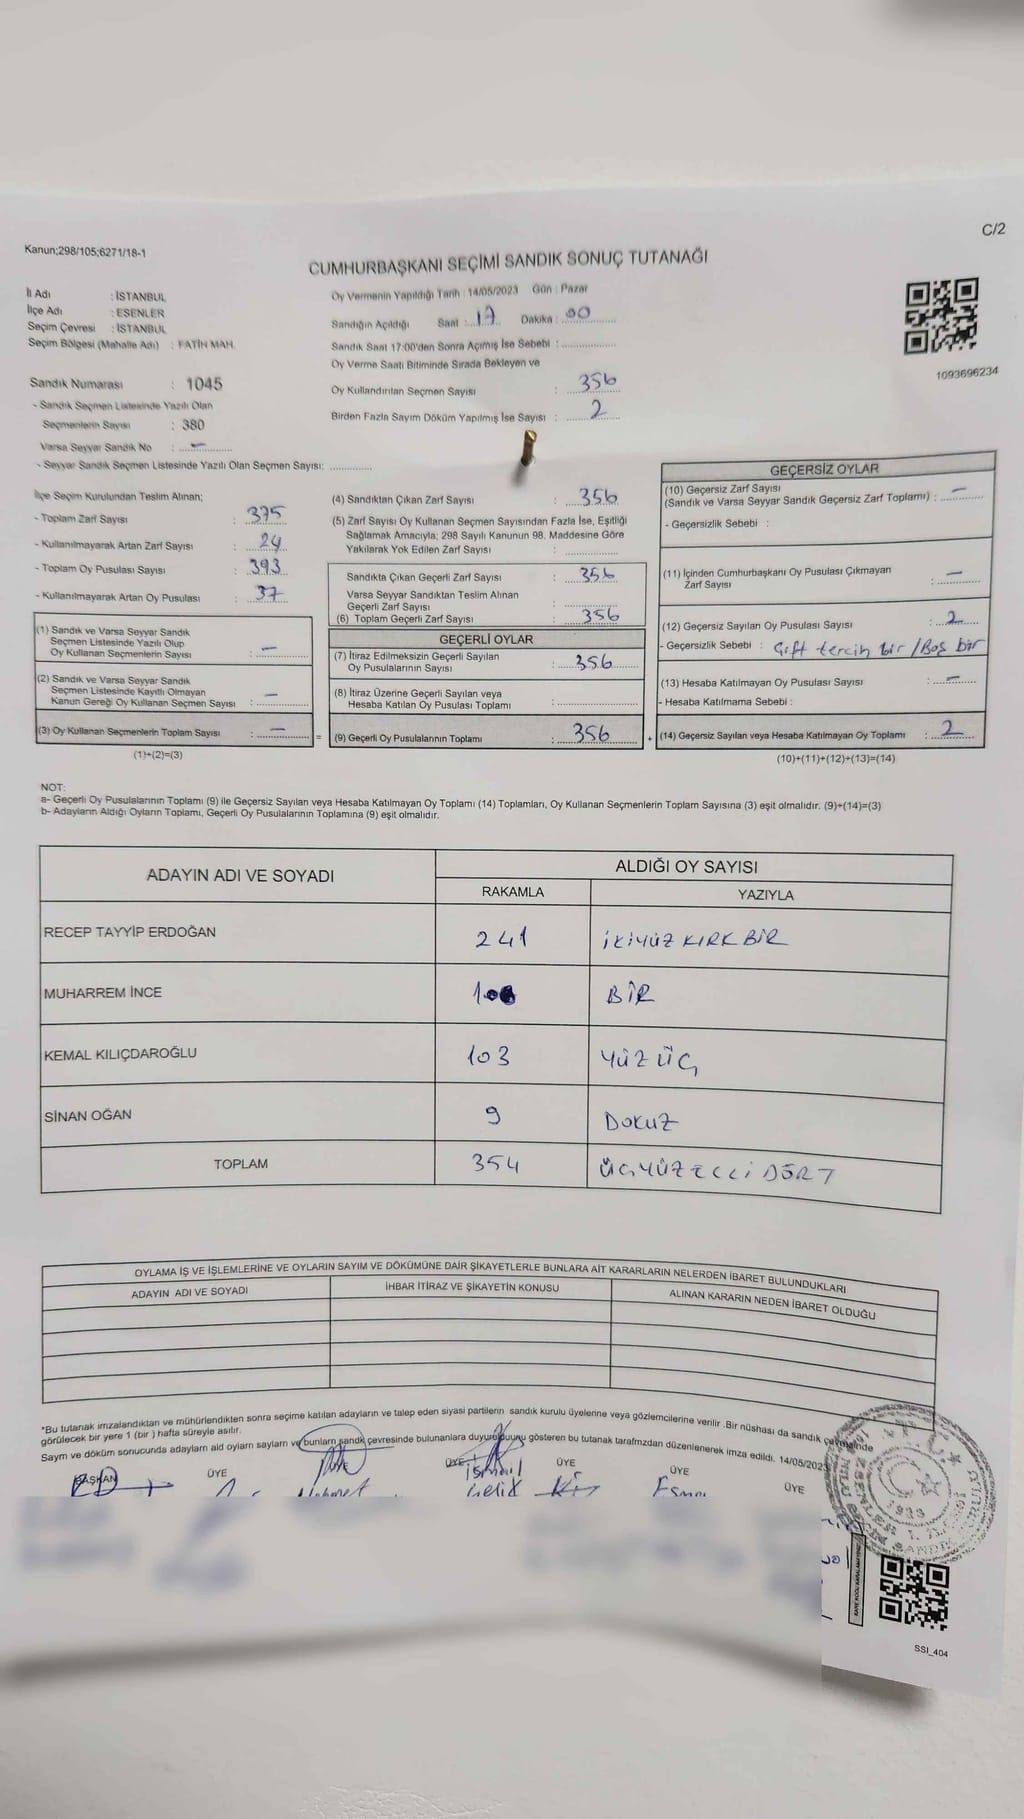 C/2
Kanun;298/105;6271/18-1
CUMHURBAŞKANI SEÇİMİ SANDIK SONUÇ TUTANAĞI
İl Adı : İSTANBUL
İlçe Adı : ESENLER
Seçim Çevresi : İSTANBUL
Seçim Bölgesi (Mahalle Adı) : FATİH MAH.
Oy Vermenin Yapıldığı Tarih : 14/05/2023 Gün : Pazar
Sandığın Açıldığı Saat : 17 Dakika : 00
Sandık Saat 17:00'den Sonra Açımış İse Sebebi :
Oy Verme Saati Bitiminde Sırada Bekleyen ve
Oy Kullandırılan Seçmen Sayısı : 356
Birden Fazla Sayım Döküm Yapılmış İse Sayısı : 2
1093696234
Sandık Numarası : 1045
- Sandık Seçmen Listesinde Yazılı Olan
Seçmenlerin Sayısı : 380
Varsa Seyyar Sandık No : -
- Seyyar Sandık Seçmen Listesinde Yazılı Olan Seçmen Sayısı:
İlçe Seçim Kurulundan Teslim Alınan;
- Toplam Zarf Sayısı : 375
- Kullanılmayarak Artan Zarf Sayısı : 24
- Toplam Oy Pusulası Sayısı : 393
- Kullanılmayarak Artan Oy Pusulası : 37
(1) Sandık ve Varsa Seyyar Sandık
Seçmen Listesinde Yazılı Olup
Oy Kullanan Seçmenlerin Sayısı : -
(2) Sandık ve Varsa Seyyar Sandık
Seçmen Listesinde Kayıtlı Olmayan
Kanun Gereği Oy Kullanan Seçmen Sayısı : -
(3) Oy Kullanan Seçmenlerin Toplam Sayısı : - =
(1)+(2)=(3)
(4) Sandıktan Çıkan Zarf Sayısı : 356
(5) Zarf Sayısı Oy Kullanan Seçmen Sayısından Fazla İse, Eşitliği
Sağlamak Amacıyla; 298 Sayılı Kanunun 98. Maddesine Göre
Yakılarak Yok Edilen Zarf Sayısı :
Sandıkta Çıkan Geçerli Zarf Sayısı : 356
Varsa Seyyar Sandıktan Teslim Alınan
Geçerli Zarf Sayısı :
(6) Toplam Geçerli Zarf Sayısı : 356
GEÇERLİ OYLAR
(7) İtiraz Edilmeksizin Geçerli Sayılan
Oy Pusulalarının Sayısı : 356
(8) İtiraz Üzerine Geçerli Sayılan veya
Hesaba Katılan Oy Pusulası Toplamı :
(9) Geçerli Oy Pusulalarının Toplamı : 356 +
GEÇERSİZ OYLAR
(10) Geçersiz Zarf Sayısı
(Sandık ve Varsa Seyyar Sandık Geçersiz Zarf Toplamı) : -
- Geçersizlik Sebebi :
(11) İçinden Cumhurbaşkanı Oy Pusulası Çıkmayan
Zarf Sayısı : -
(12) Geçersiz Sayılan Oy Pusulası Sayısı : 2
- Geçersizlik Sebebi : Çift tercih bir / Boş bir
(13) Hesaba Katılmayan Oy Pusulası Sayısı : -
- Hesaba Katılmama Sebebi :
(14) Geçersiz Sayılan veya Hesaba Katılmayan Oy Toplamı : 2
(10)+(11)+(12)+(13)=(14)
NOT:
a- Geçerli Oy Pusulalarının Toplamı (9) ile Geçersiz Sayılan veya Hesaba Katılmayan Oy Toplamı (14) Toplamları, Oy Kullanan Seçmenlerin Toplam Sayısına (3) eşit olmalıdır. (9)+(14)=(3)
b- Adayların Aldığı Oyların Toplamı, Geçerli Oy Pusulalarının Toplamına (9) eşit olmalıdır.
ADAYIN ADI VE SOYADI ALDIĞI OY SAYISI
RAKAMLA YAZIYLA
RECEP TAYYİP ERDOĞAN 241 İKİYÜZ KIRK BİR
MUHARREM İNCE 1 BİR
KEMAL KILIÇDAROĞLU 103 YÜZ ÜÇ
SİNAN OĞAN 9 DOKUZ
TOPLAM 354 ÜÇYÜZELLİ DÖRT
OYLAMA İŞ VE İŞLEMLERİNE VE OYLARIN SAYIM VE DÖKÜMÜNE DAİR ŞİKAYETLERLE BUNLARA AİT KARARLARIN NELERDEN İBARET BULUNDUKLARI
ADAYIN ADI VE SOYADI İHBAR İTİRAZ VE ŞİKAYETİN KONUSU ALINAN KARARIN NEDEN İBARET OLDUĞU
*Bu tutanak imzalandıktan ve mühürlendikten sonra seçime katılan adayların ve talep eden siyasi partilerin sandık kurulu üyelerine veya gözlemcilerine verilir .Bir nüshası da sandık çevresinde
görülecek bir yere 1 (bir ) hafta süreyle asılır.
Sayım ve döküm sonucunda adayların aldı oyların sayları ve bunların sandık çevresinde bulunanlara duyurulduğunu gösteren bu tutanak tarafımzdan düzenlenerek imza edildi. 14/05/2023
BAŞKAN ÜYE ÜYE ÜYE ÜYE ÜYE
Mehmet İsmail Çelik
SSI_404